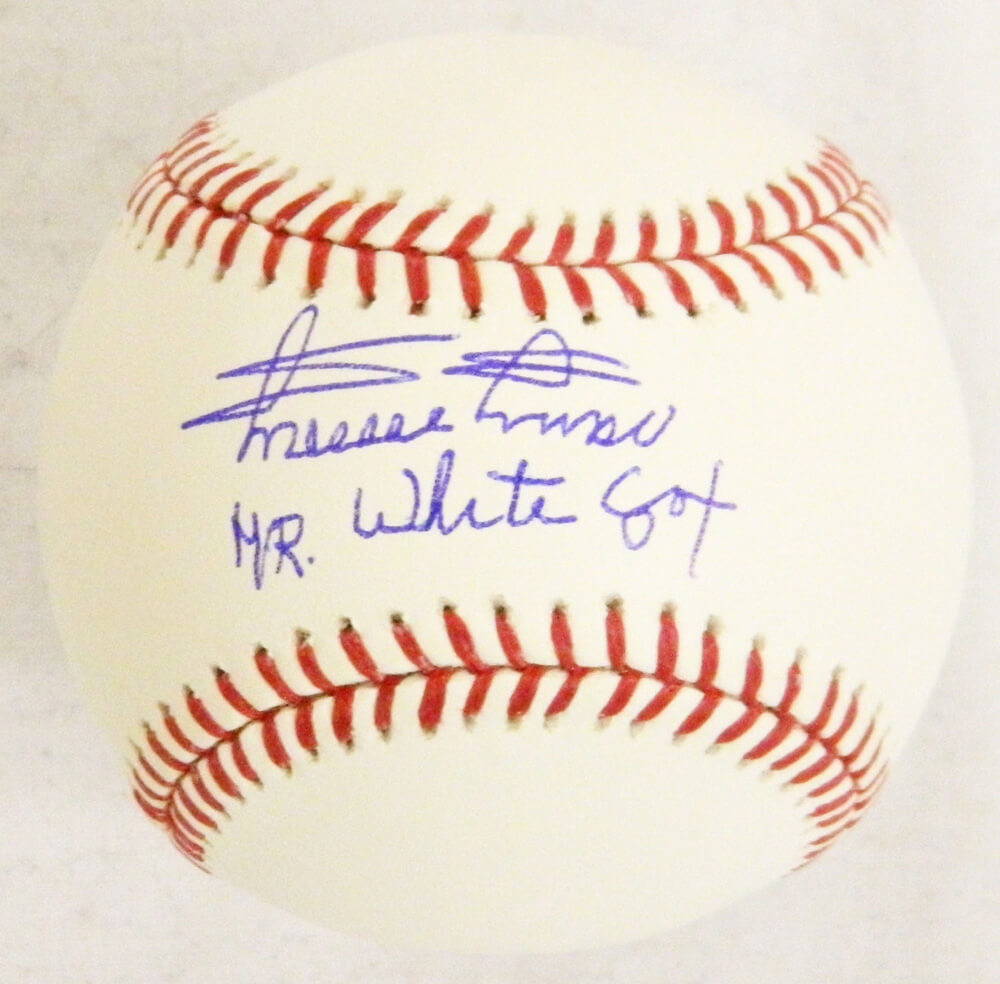 Minnie Minoso
MR. White Sox